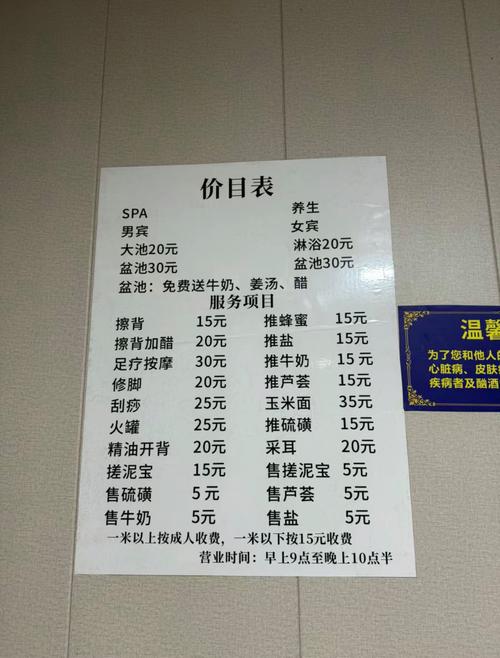 价目表
SPA 养生
男宾 女宾
大池20元 淋浴20元
盆池30元 盆池30元
盆池：免费送牛奶、姜汤、醋
服务项目
擦背 15元 推蜂蜜 15元
擦背加醋 20元 推盐 15元
足疗按摩 30元 推牛奶 15元
修脚 20元 推芦荟 15元
刮痧 25元 玉米面 35元
火罐 25元 推硫磺 15元
精油开背 20元 采耳 20元
搓泥宝 15元 售搓泥宝 5元
售硫磺 5元 售芦荟 5元
售牛奶 5元 售盐 5元
一米以上按成人收费，一米以下按15元收费
营业时间：早上9点至晚上10点半
温馨
为了您和他人的
心脏病、皮肤
疾病者及酗酒